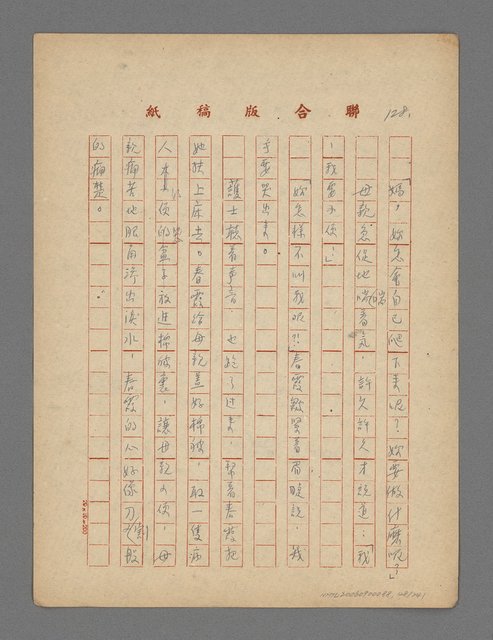 紙稿版合聯
128.
「媽，妳怎會自己爬下來呢？妳要做什麼呢？」
母親急促地喘着氣，許久許久才說道：「我
，我要小便。」
「妳怎樣不叫我呢？」春霞皺緊着眉睫說，我
乎要哭出來。
護士聽着声音，也跑了过来，幫着春霞把
她扶上床去。春霞給母親蓋好棉被，取一隻病
人小便的盒子放進棉被裏，讓母親小便，母
親痛苦他眼角滲出淚水，春霞的心好像刀割般
的痛楚。